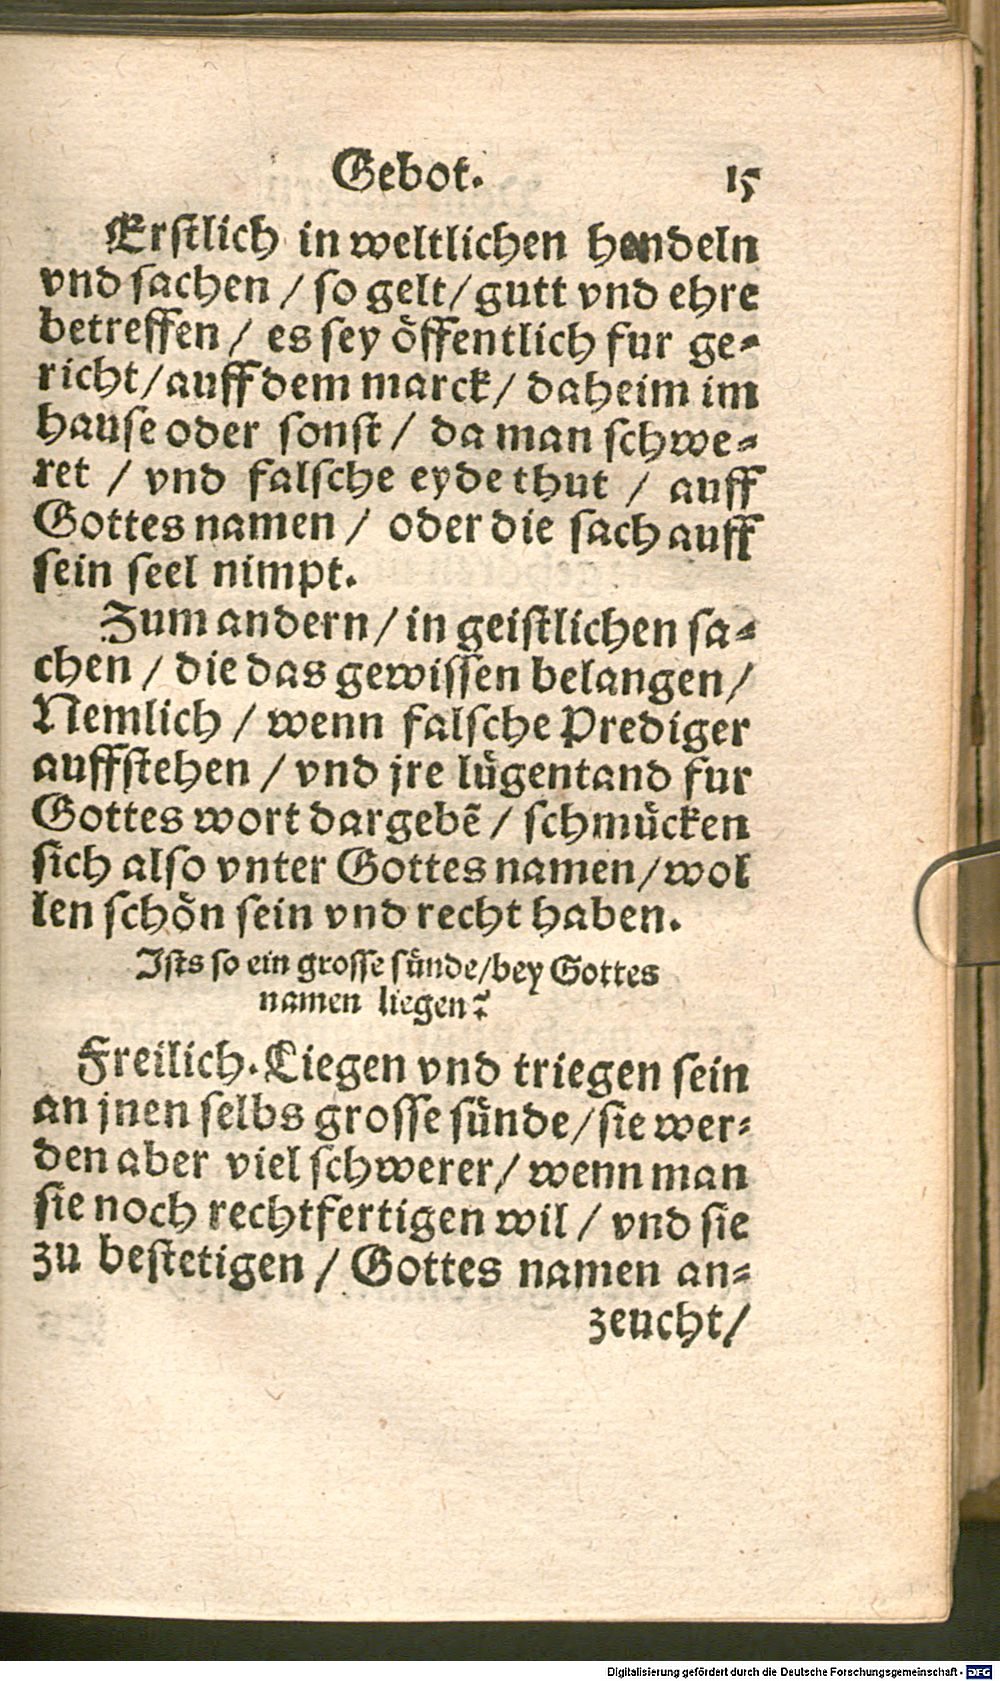 Gebot. 15
Erstlich in weltlichen hendeln
vnd sachen / so gelt / gutt vnd ehre
betreffen / es sey öffentlich fur ge=
richt / auff dem marck / daheim im
hause oder sonst / da man schwe=
ret / vnd falsche eyde thut / auff
Gottes namen / oder die sach auff
sein seel nimpt.
Zum andern / in geistlichen sa=
chen / die das gewissen belangen /
Nemlich / wenn falsche Prediger
auffstehen / vnd jre lügentand fur
Gottes wort dargebē / schmücken
sich also vnter Gottes namen / wol
len schön sein vnd recht haben.
Ists so ein grosse sünde / bey Gottes
namen liegen?
Freilich. Liegen vnd triegen sein
an jnen selbs grosse sünde / sie wer=
den aber viel schwerer / wenn man
sie noch rechtfertigen wil / vnd sie
zu bestetigen / Gottes namen an=
zeucht /
Digitalisierung gefördert durch die Deutsche Forschungsgemeinschaft - DFG